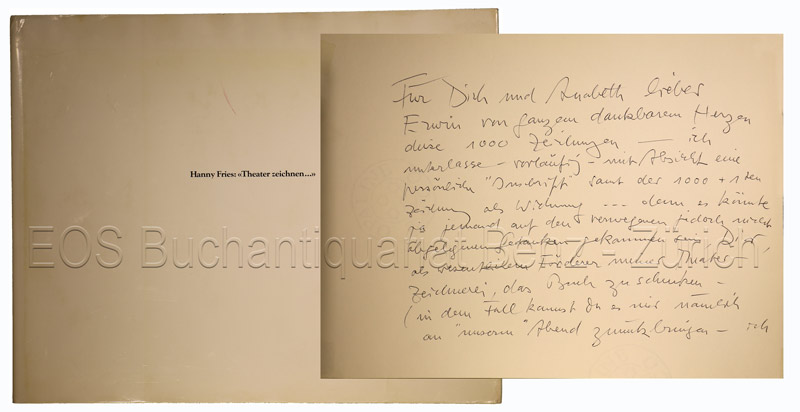 Hanny Fries: «Theater zeichnen...»
Für Dich und Anabeth lieber
Erwin von ganzem dankbarem Herzen
diese 1000 Zeichnungen — ich
unterlasse – vorläufig – mit Absicht eine
persönliche "Inschrift" samt der 1000 + 1ten
Zeichnung als Widmung --- denn es könnte
ja jemand auf den verwegenen jedoch nicht
abgelegenen Gedanken gekommen sein Dir
als Förderer meiner Theater-
Zeichnerei, das Buch zu schenken –
(in dem Fall kannst Du es mir nämlich
an "unserm" Abend zurückbringen – ich
EOS Buchantiquariat Benz - Zürich